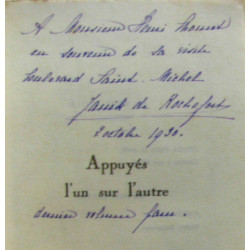 A Monsieur Henri Thomas
en souvenir de sa visite
boulevard Saint-Michel
de Rochefort
octobre 1930.
Appuyés
l'un sur l'autre
dernier volume paru.